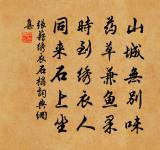 山城無別味
藥草兼魚果
時到繡衣人
同來石上坐
張籍繡衣石榻詞典網
集